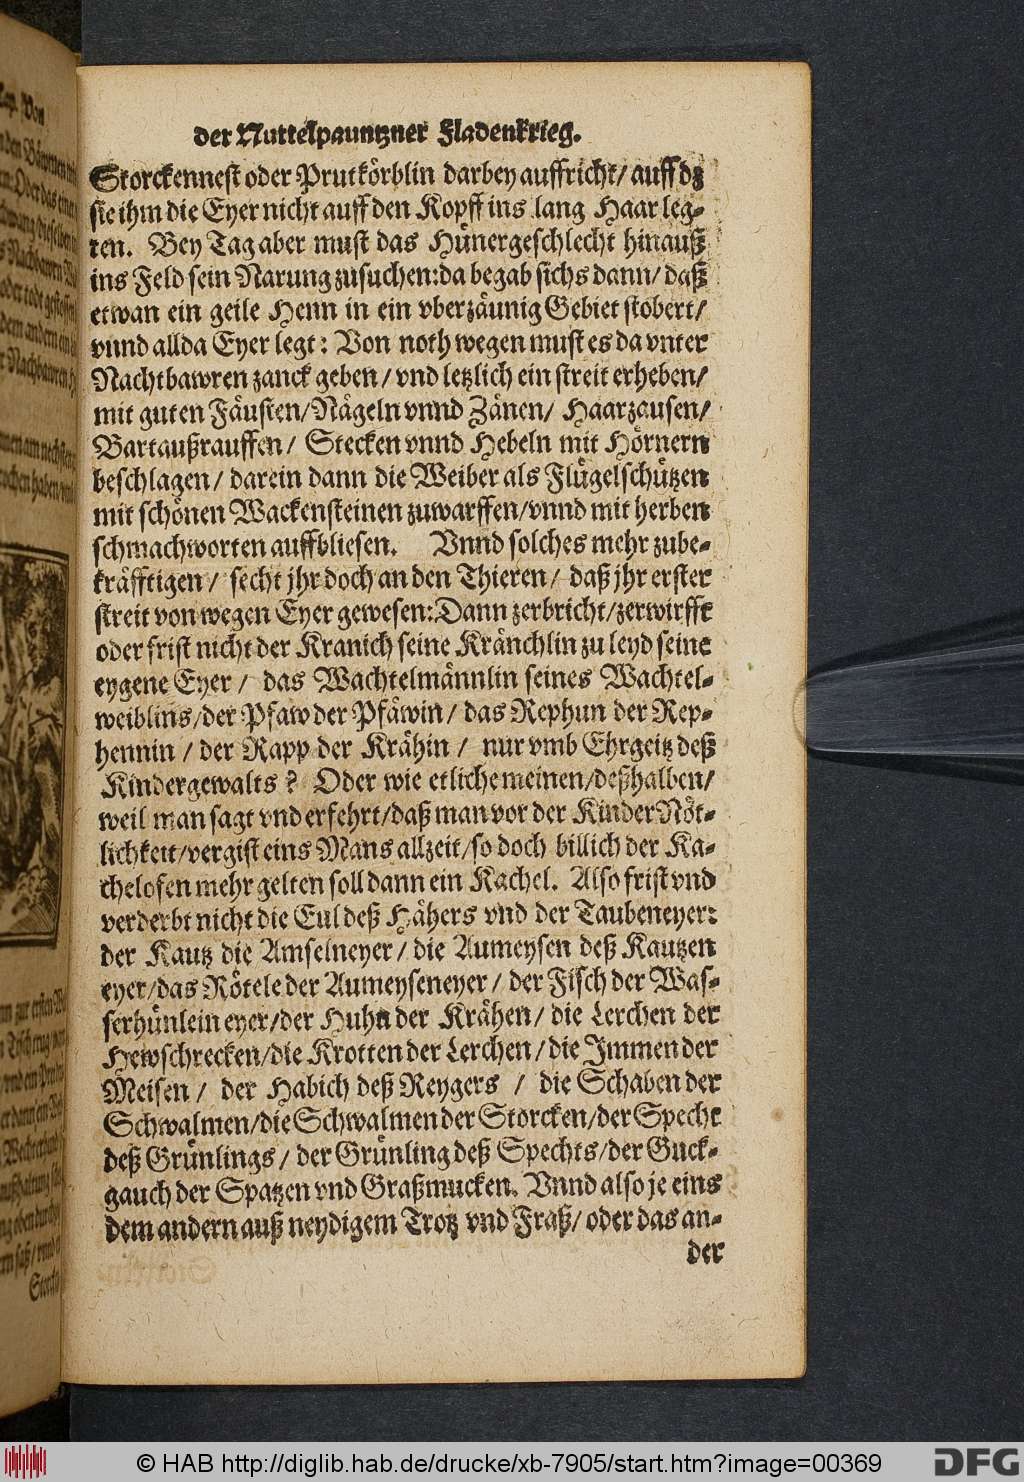 der Nuttelpauntzner Fladenkrieg.
Storckennest oder Prutkörblin darbey auffricht/ auff dz
sie ihm die Eyer nicht auff den Kopff ins lang Haar leg-
ten. Bey Tag aber must das Hünergeschlecht hinauß
ins Feld sein Narung zusuchen: da begab sichs dann/ daß
etwan ein geile Henn in ein vberzäunig Gebiet stobert/
vnnd allda Eyer legt: Von noth wegen must es da vnter
Nachtbawren zanck geben/ vnd letzlich ein streit erheben/
mit guten Fäusten/ Nägeln vnnd Zänen/ Haarzausen/
Bartaußrauffen/ Stecken vnnd Hebeln mit Hörnern
beschlagen/ darein dann die Weiber als Flügelschützen
mit schönen Wackensteinen zuwarffen/ vnnd mit herben
schmachworten auffbliesen. Vnnd solches mehr zube-
kräfftigen/ secht jhr doch an den Thieren/ daß jhr erster
streit von wegen Eyer gewesen: Dann zerbricht/ zerwirfft
oder frist nicht der Kranich seine Kränchlin zu leyd seine
eygene Eyer/ das Wachtelmännlin seines Wachtel-
weiblins/ der Pfaw der Pfäwin/ das Rephun der Rep-
hennin/ der Rapp der Krähin/ nur vmb Ehrgeitz deß
Kindergewalts? Oder wie etliche meinen/ deßhalben/
weil man sagt vnd erfehrt/ daß man vor der Kinder Nöt-
lichkeit/ vergist eins Mans allzeit/ so doch billich der Ka-
chelofen mehr gelten soll dann ein Kachel. Also frist vnd
verderbt nicht die Eul deß Hähers vnd der Taubeneyer:
der Kautz die Amselneyer/ die Aumeysen deß Kautzen
eyer/ das Rötele der Aumeyseneyer/ der Fisch der Was-
serhünlein eyer/ der Huhn der Krähen/ die Lerchen der
Hewschrecken/ die Krotten der Lerchen/ die Immen der
Meisen/ der Habich deß Reygers/ die Schaben der
Schwalmen/ die Schwalmen der Storcken/ der Specht
deß Grünlings/ der Grünling deß Spechts/ der Guck-
gauch der Spatzen vnd Graßmucken. Vnnd also je eins
dem andern auß neydigem Trotz vnd Fraß/ oder das an-
der
© HAB http://diglib.hab.de/drucke/xb-7905/start.htm?image=00369
DFG